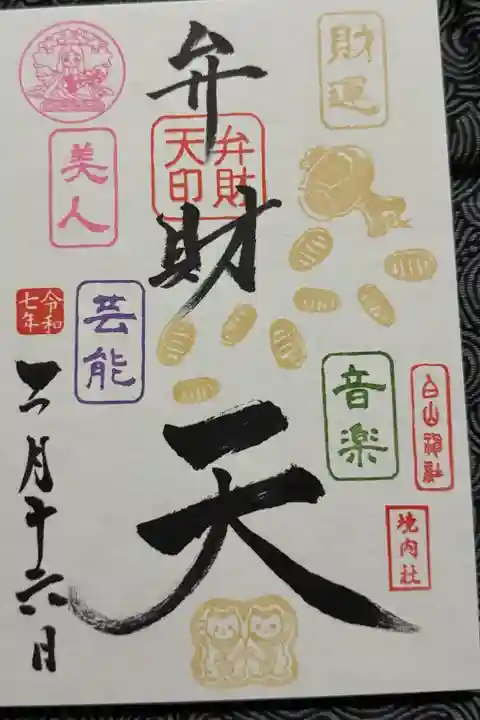 財運
弁財天
弁財
天印
美人
芸能
音楽
白山神社
境内社
令和
七年
二月十六日